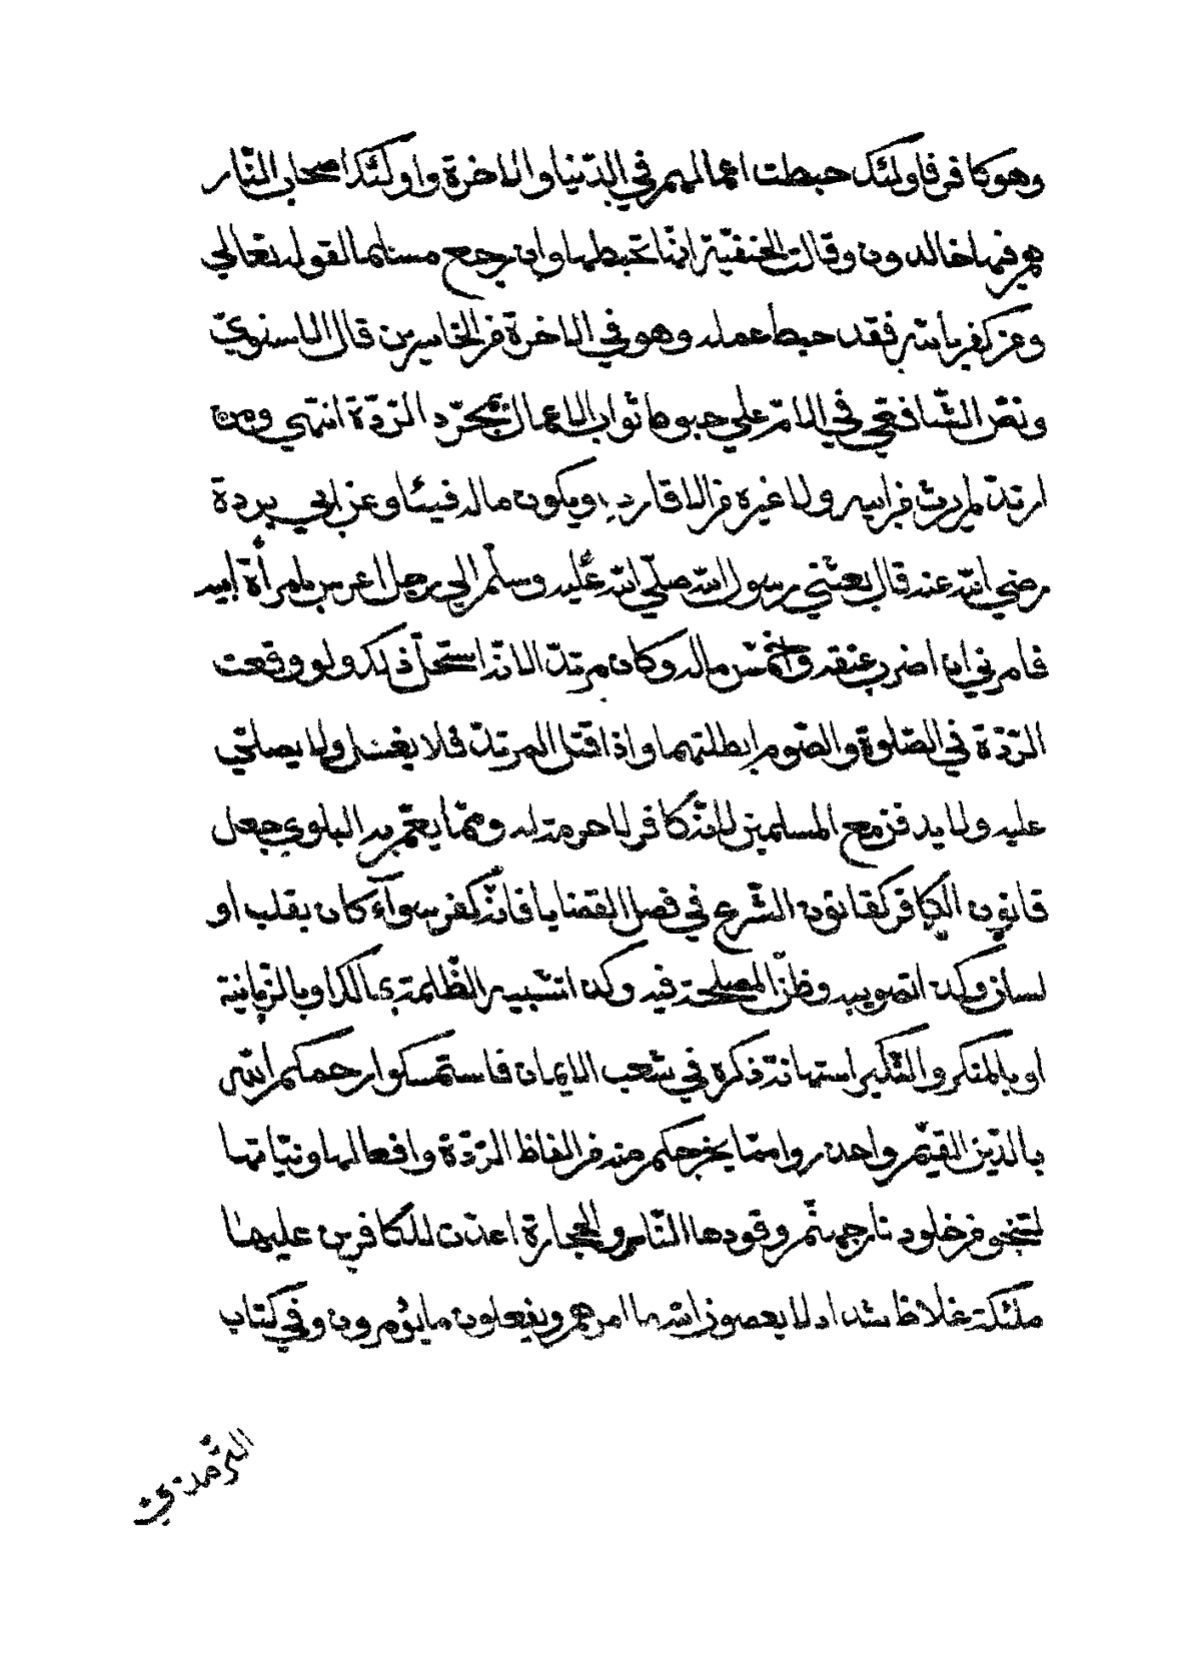 وهو كافر فاولئك حبطت اعمالهم في الدّنيا والاخرة واولئك اصحاب النّار
هم فيها خالدون وقالت الحنفيّة انّها تحبطها وان رجع مسلما لقوله تعالي
ومن كفر بالله فقد حبط عمله وهو في الاخرة من الخاسرين قال الاسنويّ
ونصّ الشّافعيّ في الامّ علي حبوط ثواب الاعمال بمجرّد الرّدّة انتهي ومن
ارتدّ لم يرث قرابته ولا غيره من الاقارب ويكون ماله فيئا وعن ابي بردة
رضي الله عنه قال بعثني رسول الله صلّي الله عليه وسلّم الي رجل اعرس بامرأة ابيه
فامرني ان اضرب عنقه واخمّس ماله وكان مرتدّا لانّه استحلّ ذلك ولو وقعت
الرّدّة في الصّلوة والصّوم ابطلتهما واذا قتل المرتدّ فلا يغسل ولا يصلّي
عليه ولا يدفن مع المسلمين لانّه كافر لا حرمة له وممّا يعمّ به البلوي جعل
قانون الكافر كقانون الشّرع في فصل القضايا فانّه كفر سوآء كان بقلب او
لسان وكذا تصويبه وظنّ المصلحة فيه وكذا تشبيه الظّلمة بمالك او بالزّبانية
او بالمنكر والنّكير استهانة ذكره في شعب الايمان فاستمسكوا رحمكم الله
بالدّين القيّم واحذروا ممّا يخرجكم منه من الفاظ الرّدّة وافعالها ونيّاتها
لتنجو من خلود نار جهنّم وقودها النّاس والحجارة اعدّت للكافرين عليها
ملئكة غلاظ شداد لا يعصون الله ما امرهم ويفعلون ما يؤمرون وفي كتاب
التّرمذيّ